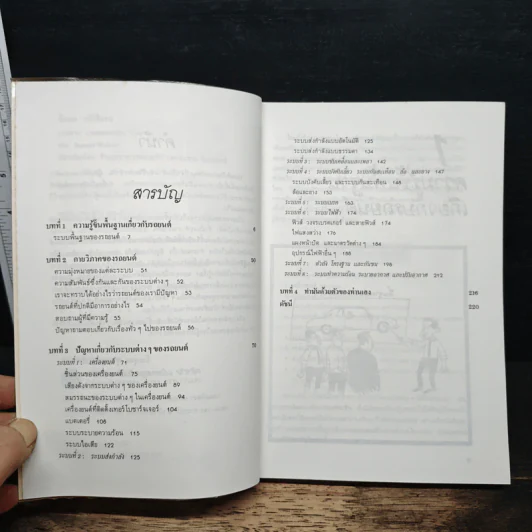 สารบัญ
บทที่ 1 ความรู้ขั้นพื้นฐานเกี่ยวกับรถยนต์
ระบบพื้นฐานของรถยนต์ 7
บทที่ 2 กายวิภาคของรถยนต์ 50
ความมุ่งหมายของแต่ละระบบ 51
ความสัมพันธ์ซึ่งกันและกันของระบบต่าง ๆ 52
เราจะทราบได้อย่างไรว่ารถยนต์ของเรามีปัญหา
รถยนต์ที่ปกติมีอาการอย่างไร 54
สอบถามผู้ที่มีความรู้ 55
ปัญหาถามตอบเกี่ยวกับเรื่องทั่ว ๆ ไปของรถยนต์ 56
บทที่ 3 ปัญหาเกี่ยวกับระบบต่าง ๆ ของรถยนต์ 70
ระบบที่ 1 : เครื่องยนต์ 71
ชิ้นส่วนของเครื่องยนต์ 75
เสียงดังจากระบบต่าง ๆ ของเครื่องยนต์ 89
สมรรถนะของระบบต่าง ๆ ในเครื่องยนต์ 94
เครื่องยนต์ที่ติดตั้งเทอร์โบชาร์จเจอร์ 104
แบตเตอรี่ 106
ระบบระบายความร้อน 115
ระบบไอเสีย 122
ระบบที่ 2 : ระบบส่งกำลัง 125
ระบบส่งกำลังแบบอัตโนมัติ 125
ระบบส่งกำลังแบบธรรมดา 134
ระบบที่ 3 : ระบบขับเคลื่อนและเพลา 142
ระบบบังคับเลี้ยว และระบบกันสะเทือน 148
ล้อและยาง 153
ระบบที่ 5 : ระบบเบรก
ระบบที่ 6 : ระบบไฟฟ้า 174
ฟิวส์ วงจรเบรคเกอร์ และสายฟิวส์ 174
ไฟแสงสว่าง 176
แผงหน้าปัด และมาตรวัดต่าง ๆ
อุปกรณ์ไฟฟ้าอื่น ๆ
ระบบที่ 7 : ตัวถัง โครงฐาน และกันชน
ระบบที่ 8 : ระบบทำความร้อน ระบายอากาศ และปรับอากาศ
บทที่ 4 ทำมันด้วยตัวของท่านเอง
ดัชนี 220